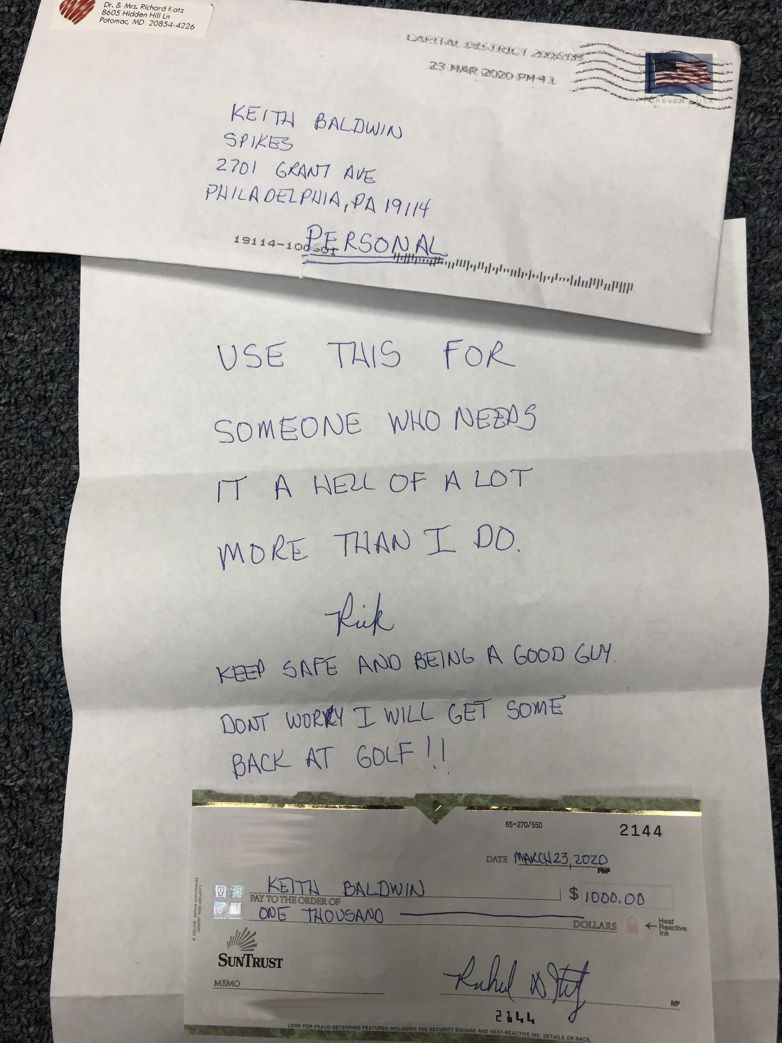 Dr. & Mrs. Richard Katz
8605 Hidden Hill Ln
Potomac, MD 20854-4226
CAPITAL DISTRICT
23 MAR 2020 PM 4 L
FOREVER
KEITH BALDWIN
SPIKES
2701 GRANT AVE
PHILADELPHIA, PA 19114
PERSONAL
19114-100601
USE THIS FOR
SOMEONE WHO NEEDS
IT A HELL OF A LOT
MORE THAN I DO.
Rick
KEEP SAFE AND BEING A GOOD GUY.
DONT WORRY I WILL GET SOME
BACK AT GOLF!!
65-270/550
2144
DATE MARCH 23, 2020
KEITH BALDWIN $ 1000.00
PAY TO THE ORDER OF
ONE THOUSAND DOLLARS
Heat
Reactive
Ink
SUNTRUST
MEMO
MP
2144
LOOK FOR FRAUD-DETERRING FEATURES INCLUDING THE SECURITY SQUARE AND HEAT-REACTIVE INK. DETAILS ON BACK.